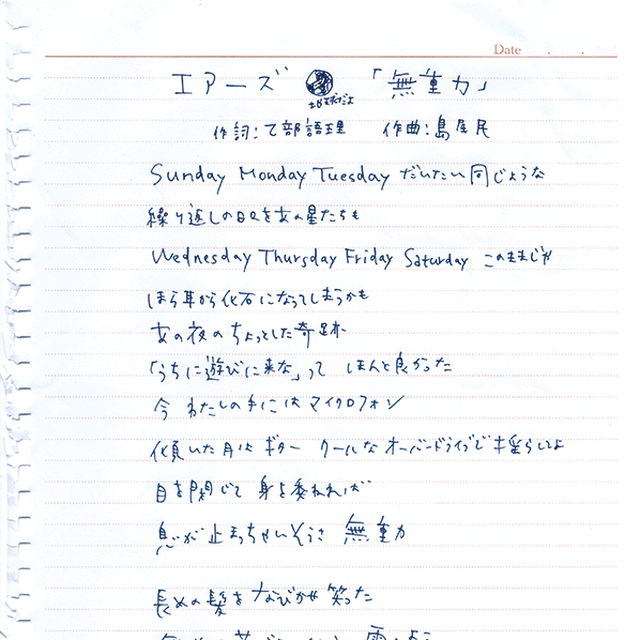 Date . .
エアーズ 「無重力」
だよ
作詞:乙部語理 作曲:島居民
Sunday Monday Tuesday だいたい同じような
繰り返しの日々をあの星たちも
Wednesday Thursday Friday Saturday このままじゃ
ほら耳から化石になってしまうかも
あの夜のちょっとした奇跡
「うちに遊びに来な」って ほんと良かった
今 わたしの手にはマイクロフォン
傾いた月は ギター クールな オーバードライブで揺らしてよ
目を閉じて 身を委ねれば
息が止まっちゃいそうさ 無重力
長めの髪をなびかせ笑った